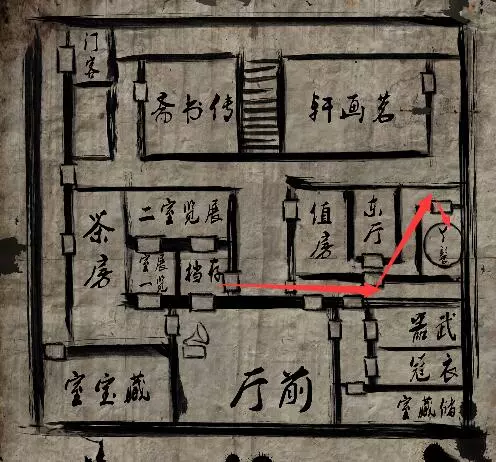 门客
传书斋
茗画轩
茶房
展览室二
展览
室一
存档
值房
东厅
武器
衣冠
储藏室
藏宝室
前厅